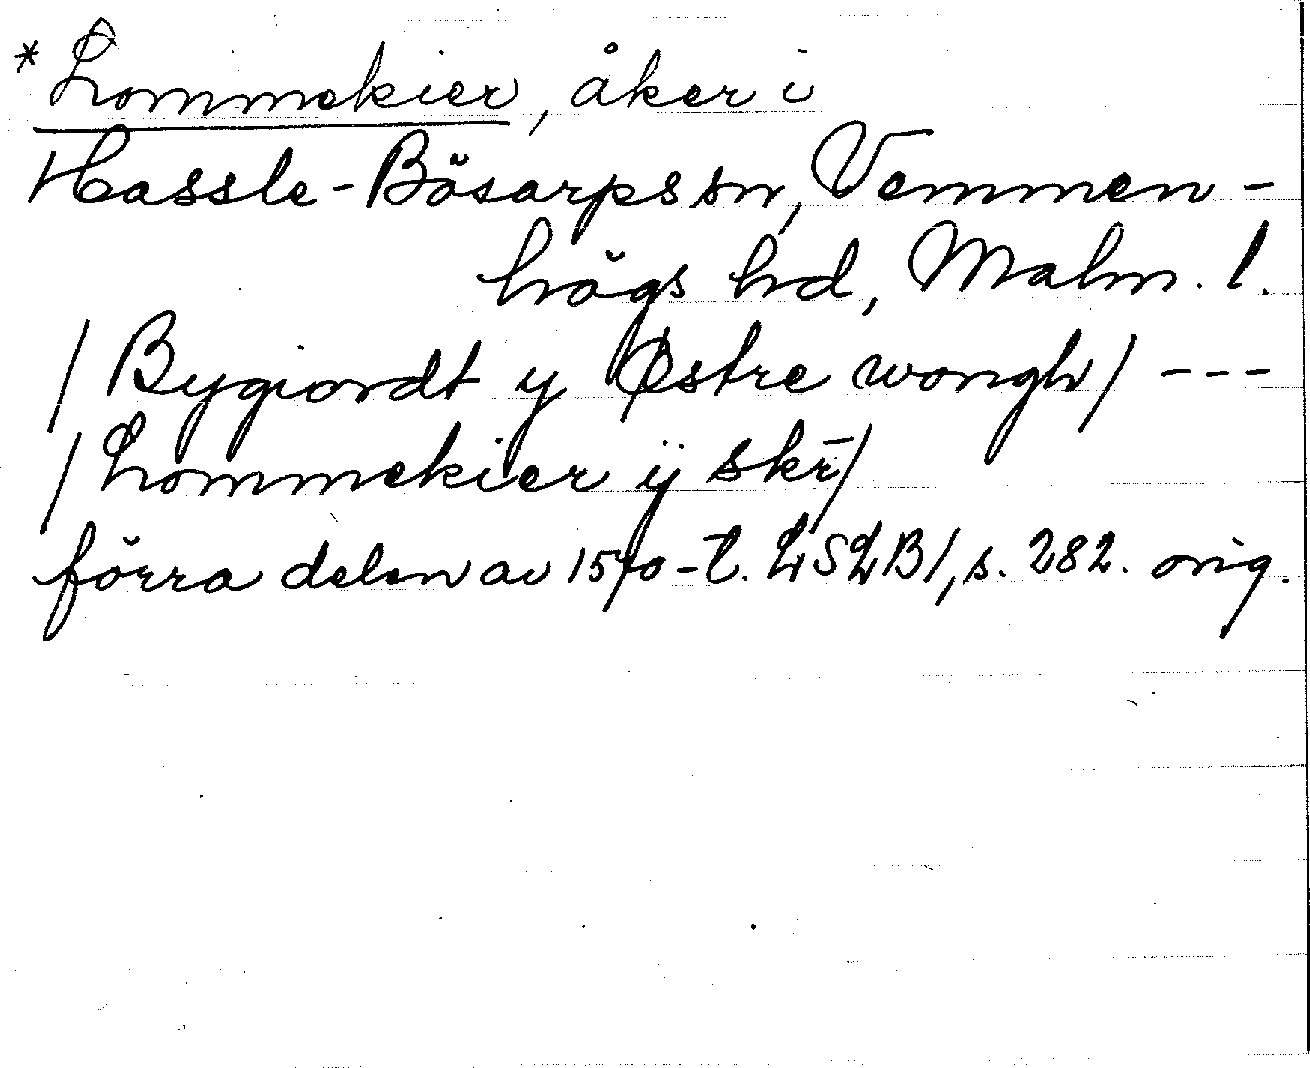 *Lommekier, åker i
Hassle-Bösarps sn, Vemmen-
högs hd, Malm. l.
/Bygiordt y Østre wongh/ ---
/Lommekier ÿ skr̄/
förra delen av 1570-t. LSLB1, s. 282. orig.